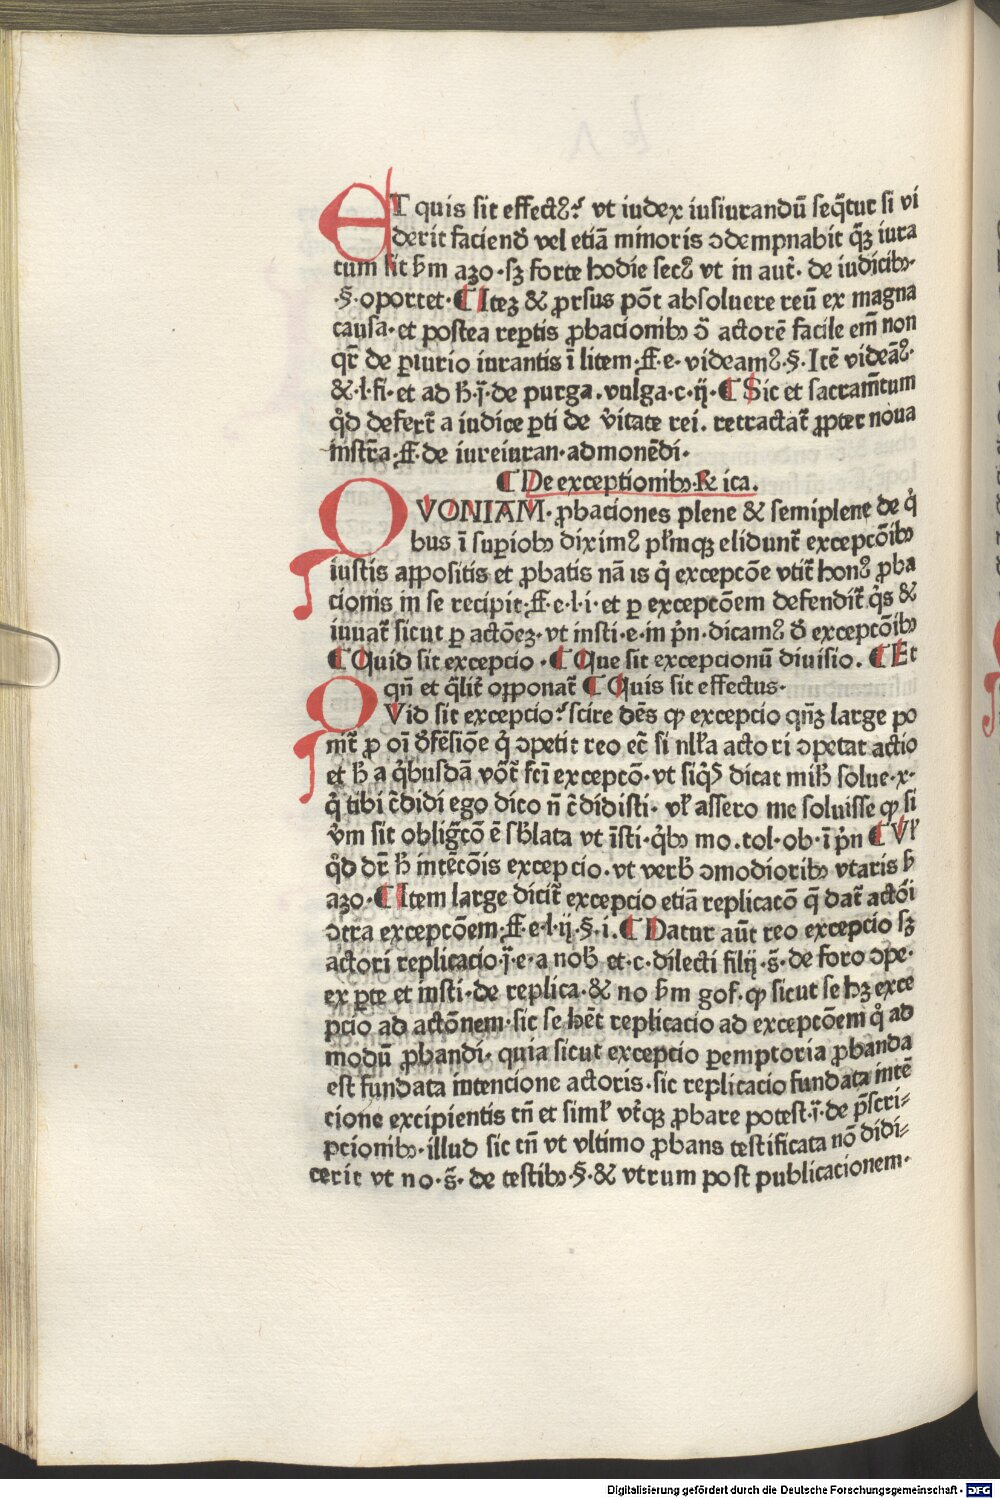 ET quis sit effectꝰ? vt iudex iusiurandū seq̄tur si vi
derit faciendū vel etiā minoris ↄdempnabit q̄ʒ iura
tum sit ẜm azo·sʒ forte hodie secꝰ vt in aut̄. de iudicibꝫ·
·§·oportet·¶Iteʒ & ꝓrsus pōt absoluere reū ex magna
causa·et postea rep̱tis ꝓbacionibꝫ ꝯ̄ actorē facile em̄ non
qr̄ de ꝑiurio iurantis ī litem·ff·e·videamꝰ·§·Itē videāꝰ·
&·l·fi·et ad h̄·ī·de purga·vulga·c·ij·¶Sic et sacram̄tum
qd̓ defert̄ a iudice ꝑti de v̓itate rei. retractat̄ ꝓpter noua
instr̄a·ff·de iureiuran·admonēdi·
¶De exceptionibꝫ·R̶ica.
QVONIAM·ꝓbaciones plene & semiplene de q̓
bus ī suꝑiobꝫ diximꝰ plr̄mqʒ elidunt̄ excepcōibꝫ
iustis appositis et ꝓbatis nā is q̓ excepcōe vtit̄ honꝰ ꝓba
cionis in se recipit·ff·e·l·i·et ꝑ excepcōem defendit̄ q̓s &
iuuat̄ sicut ꝑ actōeʒ·vt insti·e·in pn̄·dicamꝰ ď excepcōibꝫ
¶Quid sit excepcio·¶Que sit excepcionū diuisio.¶Et
qn̄ et q̄lit̄ opponat̄ ¶Quis sit effectus·
QVid sit excepcio? scire dēs ꝙ excepcio qn̄ʒ large po
nit̄ ꝓ oī ďfēsiōe q̓ ↄpetit reo ec̄ si nll̓a actori ↄpetat actio
et h̄ a q̓busdā vōt̄ fcī excepcō·vt siq̓s dicat mih̓ solue·x·
q̓ tibi c̄didi ego dico n̄ c̄didisti· vl̓ assero me soluisse ꝙ si
v̓m sit oblig̃cō ē sb̓lata vt īsti·q̓bꝫ mo.tol·ob·ī pn̄ ¶Vl̓
qd̓ dr̄ h̄ intēcōis excepcio.vt verb̓ ↄmodioribꝫ vtaris ẜ
azo·¶Item large dicit̄ excepcio etiā replicacō q̄ dat̄ actōi
ↄtra excepcōem·ff·e·l·ij·§·i.¶Datur aūt reo excepcio sʒ
actori replicacio·ī·e·a nob̓ et·c·dilecti filij·s̄·de foro ↄpe·
ex ꝑte et insti·de replica·& no ẜm gof·ꝙ sicut se hʒ exce
pcio ad actōnem·sic se hēt replicacio ad excepcōem q̓ ad
modū ꝓbandi· quia sicut excepcio ꝑemptoria ꝓbanda
est fundata intencione actoris·sic replicacio fundata intē
cione excipientis tn̄ et siml̓ vt̓qʒ ꝓbare potest·ī·de p̄scri⸗
pcionibꝫ·illud sic tn̄ vt vltimo ꝓbans testificata nō didi⸗
cerit vt no·s̄· de testibꝫ·§·& vtrum post publicacionem·
Digitalisierung gefördert durch die Deutsche Forschungsgemeinschaft - DFG